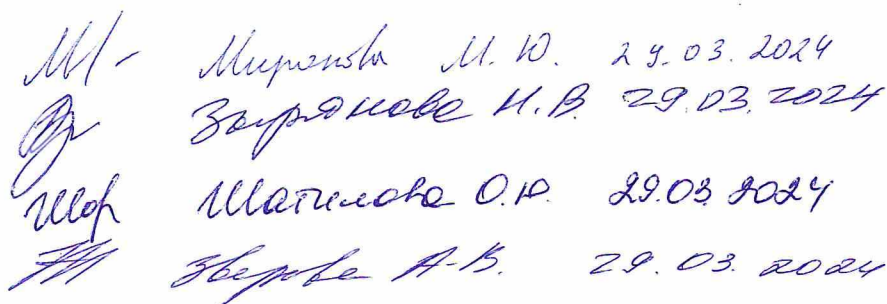 Миронова М. Ю. 29.03.2024
Зырянова Н.В. 29.03.2024
Шатилова О.Ю. 29.03.2024
Зверева А.В. 29.03.2024